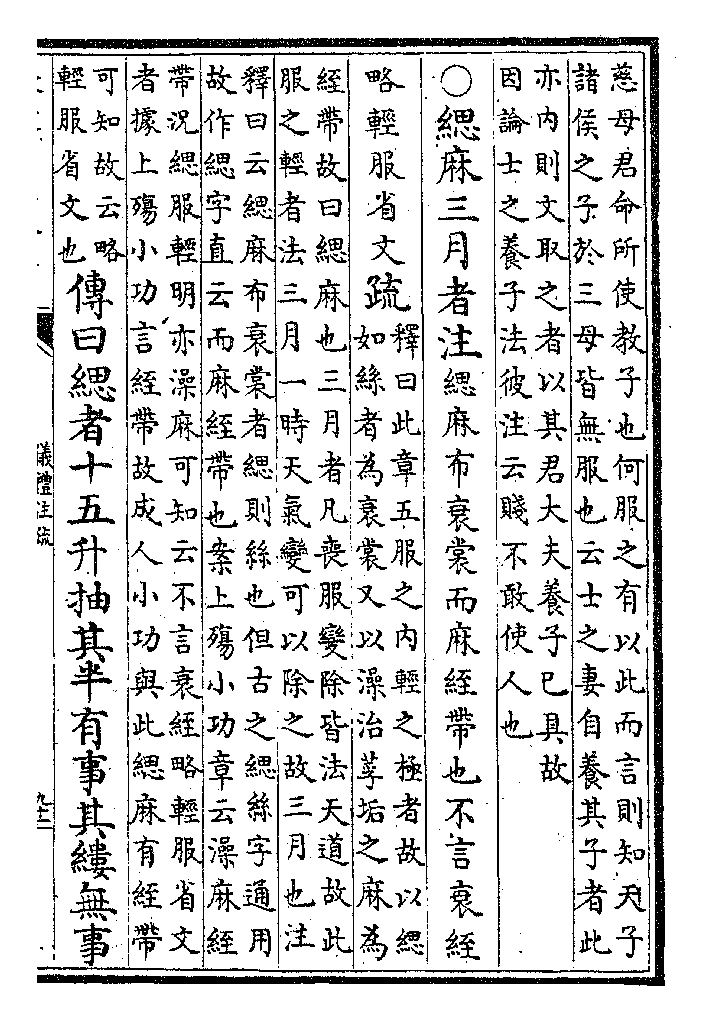 慈母君命所使教子也何服之有以此而言則知天子
諸侯之子於三母皆無服也云士之妻自養其子者此
亦內則文取之者以其君大夫養子已具故
因論士之養子法彼注云賤不敢使人也
○緦麻三月者注緦麻布衰裳而麻絰帶也不言衰絰
略輕服省文疏
釋曰此章五服之內輕之極者故以緦
如絲者為衰裳又以澡治莩垢之麻為
絰帶故曰緦麻也三月者凡喪服變除皆法天道故此
服之輕者法三月一時天氣變可以除之故三月也注
釋曰云緦麻布衰裳者緦則絲也但古之緦絲字通用
故作緦字直云而麻絰帶也案上殤小功章云澡麻絰
帶況緦服輕明亦澡麻可知云不言衰絰略輕服省文
者據上殤小功言絰帶故成人小功與此緦麻有絰帶
可知故云略
輕服省文也
傳曰緦者十五升抽其半有事其縷無事
儀禮注疏